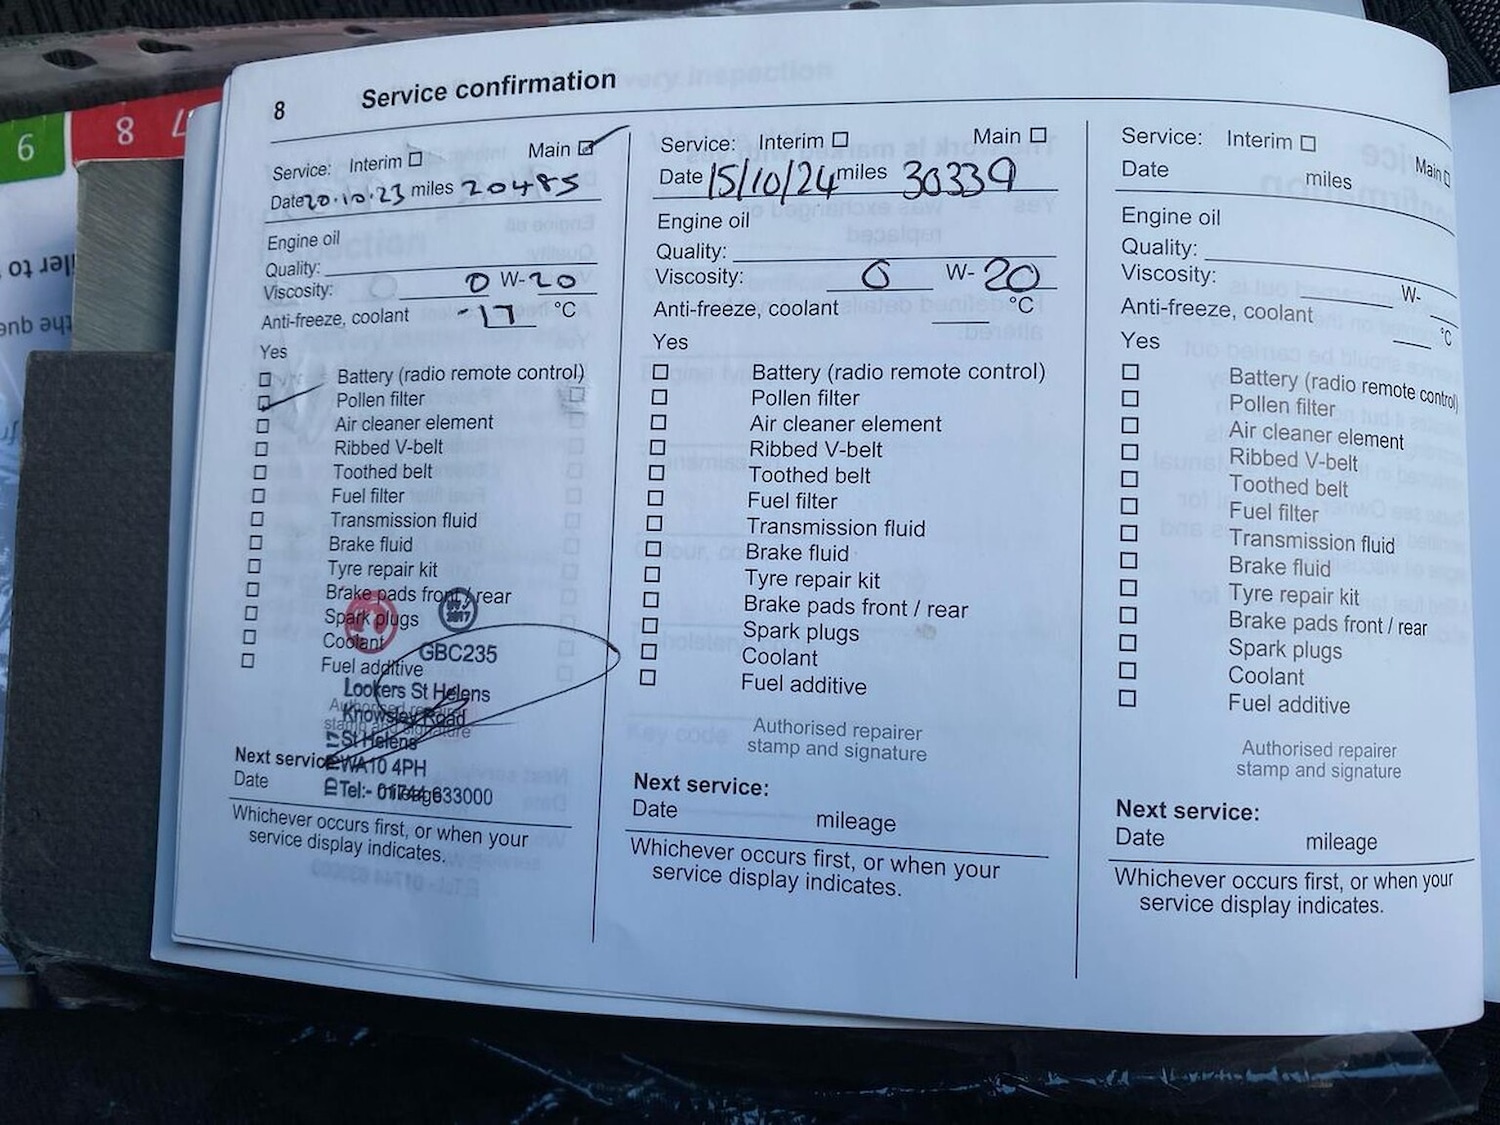 8 Service confirmation
Service: Interim Main
Date 20.10.23 miles 20485
Engine oil
Quality:
Viscosity: 0 W-20
Anti-freeze, coolant -17 °C
Yes
Battery (radio remote control)
Pollen filter
Air cleaner element
Ribbed V-belt
Toothed belt
Fuel filter
Transmission fluid
Brake fluid
Tyre repair kit
Brake pads front / rear
Spark plugs
Coolant
Fuel additive
2017
GBC235
Lookers St Helens
Knowsley Road
St Helens
WA10 4PH
Tel:- 01744 633000
Authorised repairer
stamp and signature
Next service:
Date mileage
Whichever occurs first, or when your
service display indicates.
Service: Interim Main
Date 15/10/24 miles 30339
Engine oil
Quality:
Viscosity: 0 W-20
Anti-freeze, coolant °C
Yes
Battery (radio remote control)
Pollen filter
Air cleaner element
Ribbed V-belt
Toothed belt
Fuel filter
Transmission fluid
Brake fluid
Tyre repair kit
Brake pads front / rear
Spark plugs
Coolant
Fuel additive
Authorised repairer
stamp and signature
Next service:
Date mileage
Whichever occurs first, or when your
service display indicates.
Service: Interim Main
Date miles
Engine oil
Quality:
Viscosity: W-
Anti-freeze, coolant °C
Yes
Battery (radio remote control)
Pollen filter
Air cleaner element
Ribbed V-belt
Toothed belt
Fuel filter
Transmission fluid
Brake fluid
Tyre repair kit
Brake pads front / rear
Spark plugs
Coolant
Fuel additive
Authorised repairer
stamp and signature
Next service:
Date mileage
Whichever occurs first, or when your
service display indicates.
6
8
7
ler to
the que